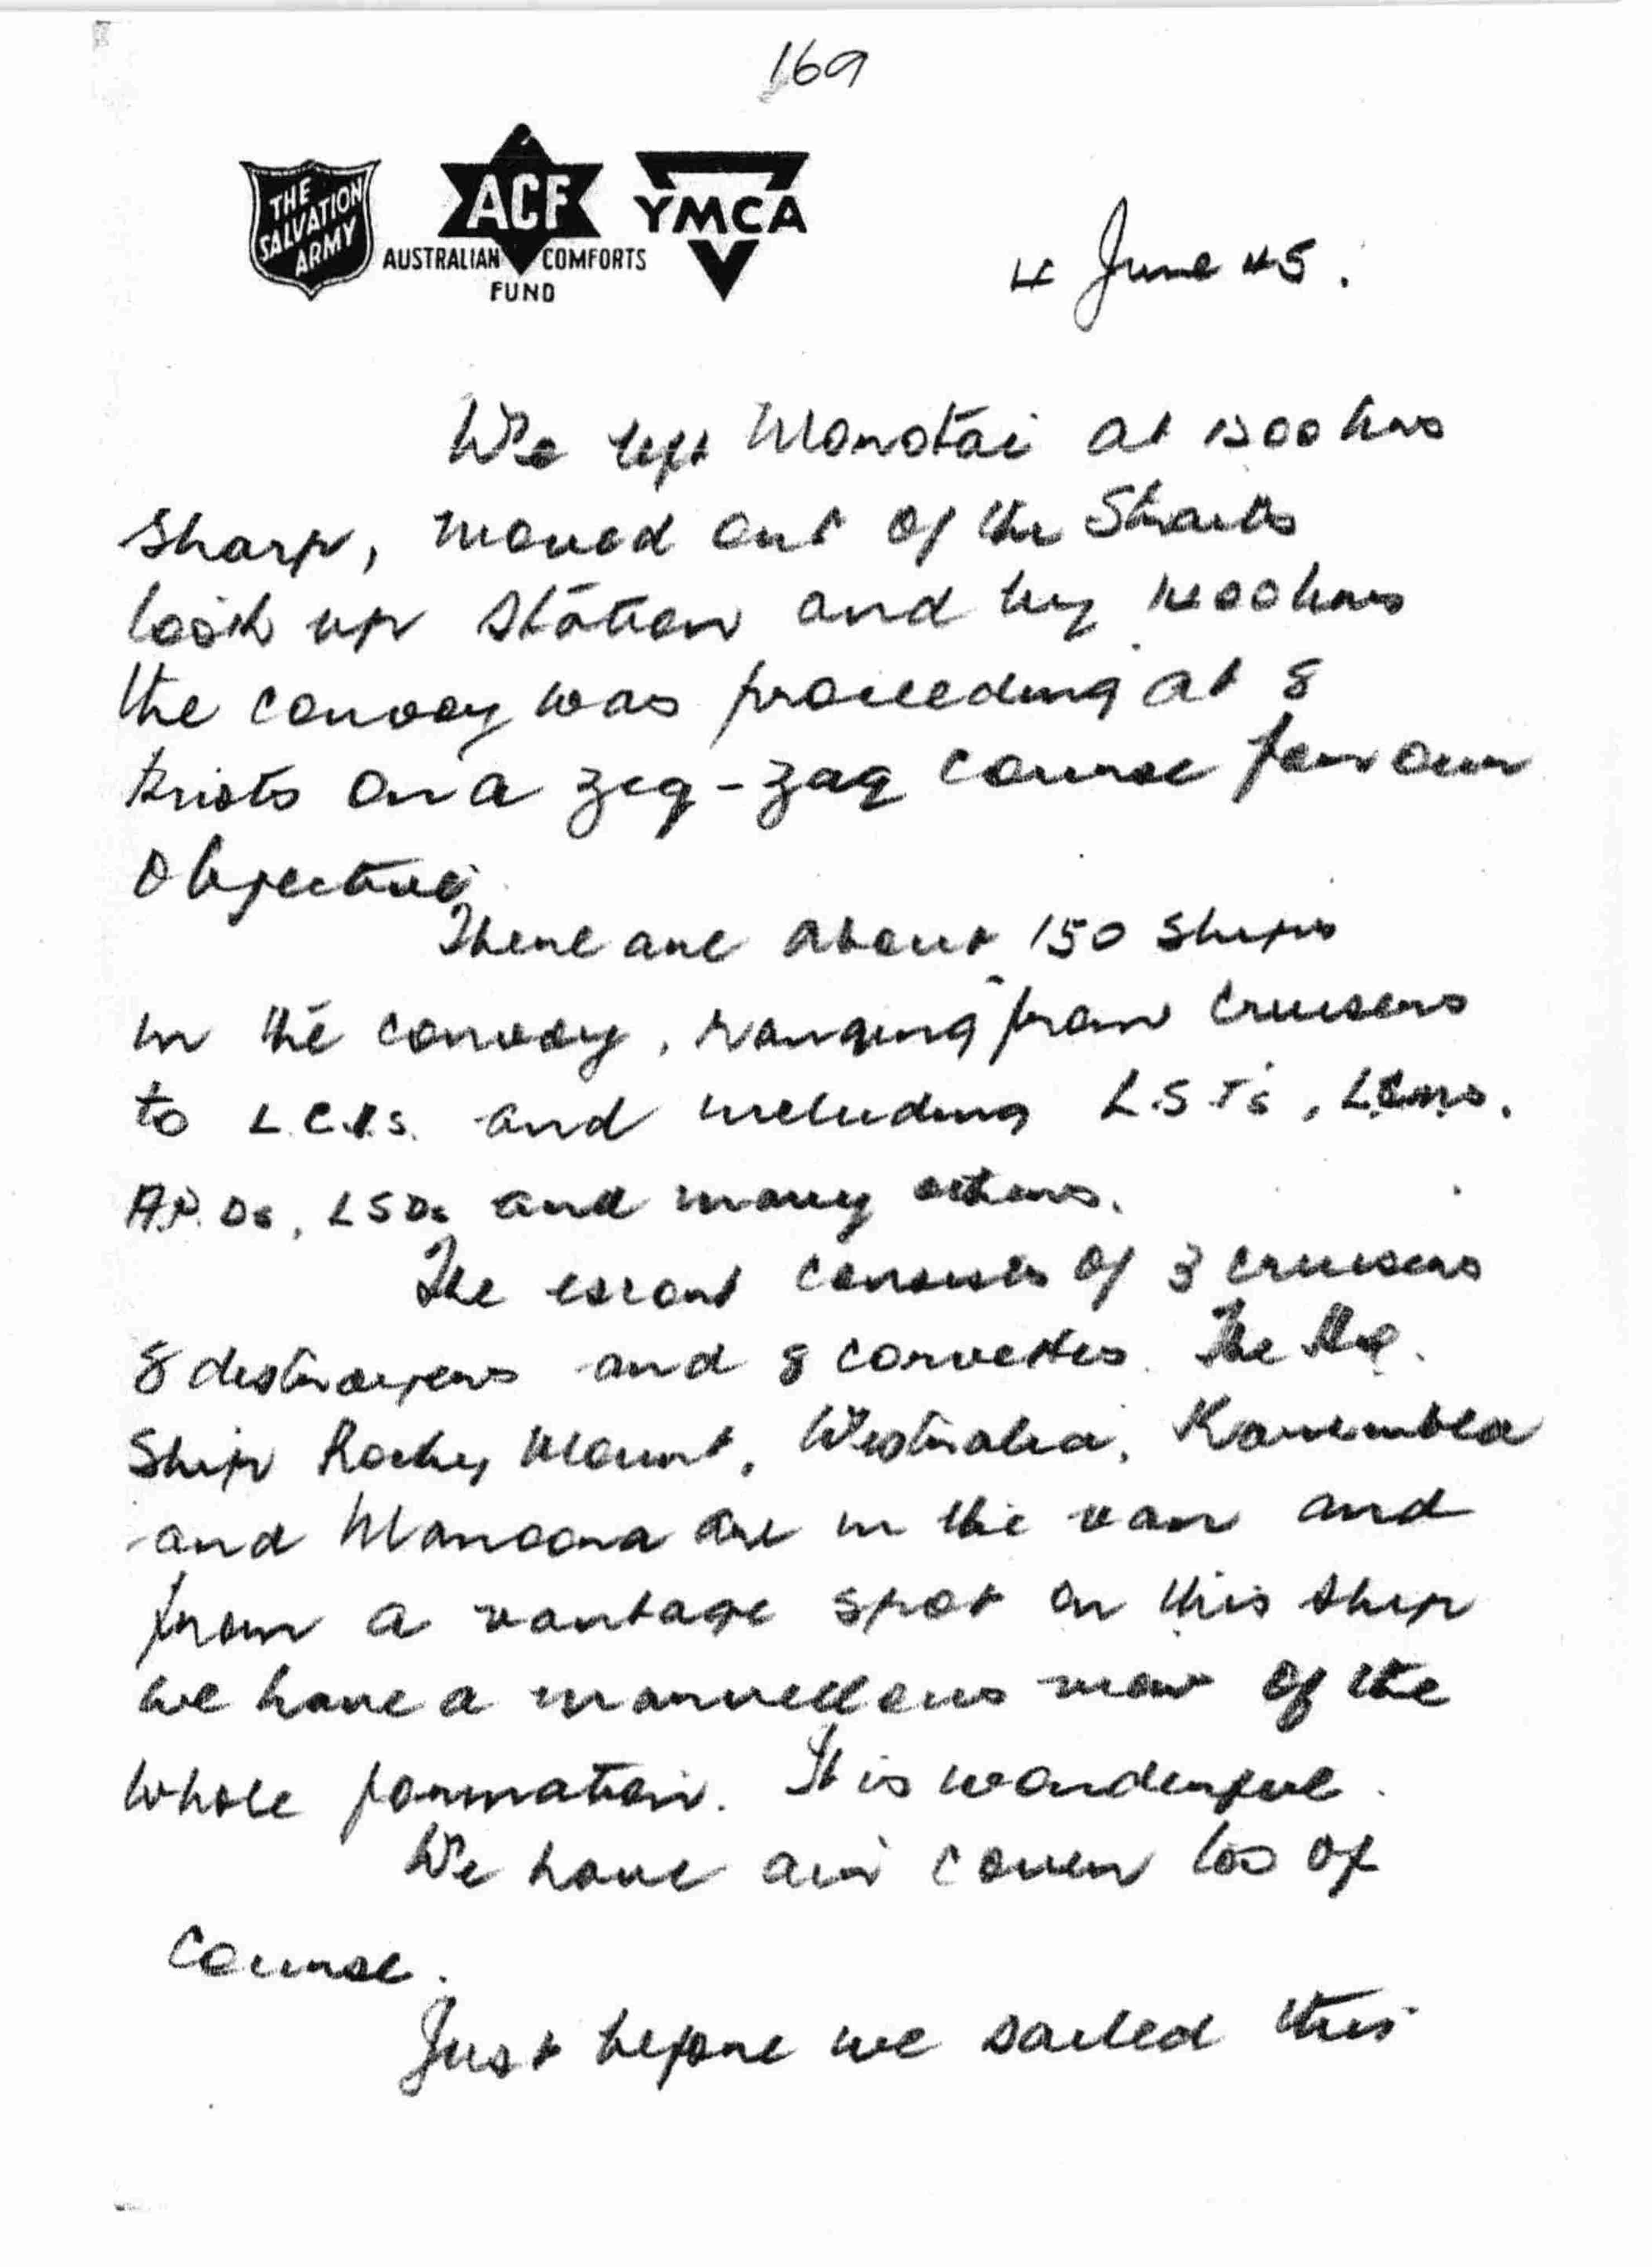 169
THE SALVATION ARMY
ACF
AUSTRALIAN COMFORTS FUND
YMCA
4 June 45.
We left Morotai at 1300 hrs
sharp, moved out of the Straits
took up station and by 1400 hrs
the convoy was proceeding at 8
knots on a zig-zag course for our
objective.
There are about 150 ships
in the convoy, ranging from cruisers
to L.C.I.s. and including L.S.T's, L.S.Ms.
A.P.Ds, LSDs and many others.
The escort consists of 3 cruisers
8 destroyers and 8 corvettes. The HQ.
Ship Rocky Mount, Westralia, Kanimbla
and Manoora are in the van and
from a vantage spot on this ship
we have a marvellous view of the
whole formation. It is wonderful.
We have air cover too of
course.
Just before we sailed this